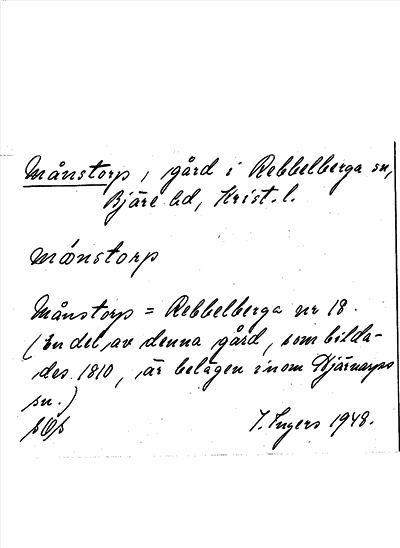 Månstorp, gård i Rebbelberga sn,
Bjäre hd, Krist. l.
månstorp
Månstorp = Rebbelberga nr 18.
(En del av denna gård, som bilda-
des 1810, är belägen inom Hjärnarps
sn.)
I. Ingers 1948.